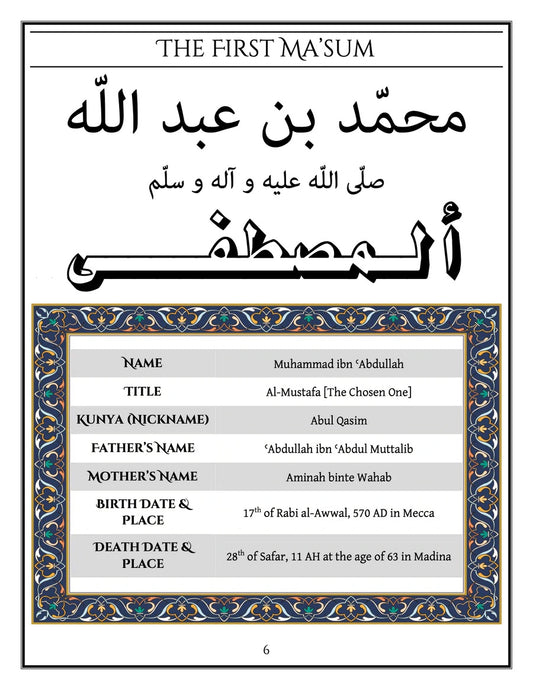 The First Ma'sum
محمّد بن عبد اللّه
صلّى اللّه عليه و آله و سلّم
ألمصطفى
Name Muhammad ibn ʿAbdullah
Title Al-Mustafa [The Chosen One]
Kunya (Nickname) Abul Qasim
Father's Name ʿAbdullah ibn ʿAbdul Muttalib
Mother's Name Aminah binte Wahab
Birth Date &
Place 17th of Rabi al-Awwal, 570 AD in Mecca
Death Date &
Place 28th of Safar, 11 AH at the age of 63 in Madina
6